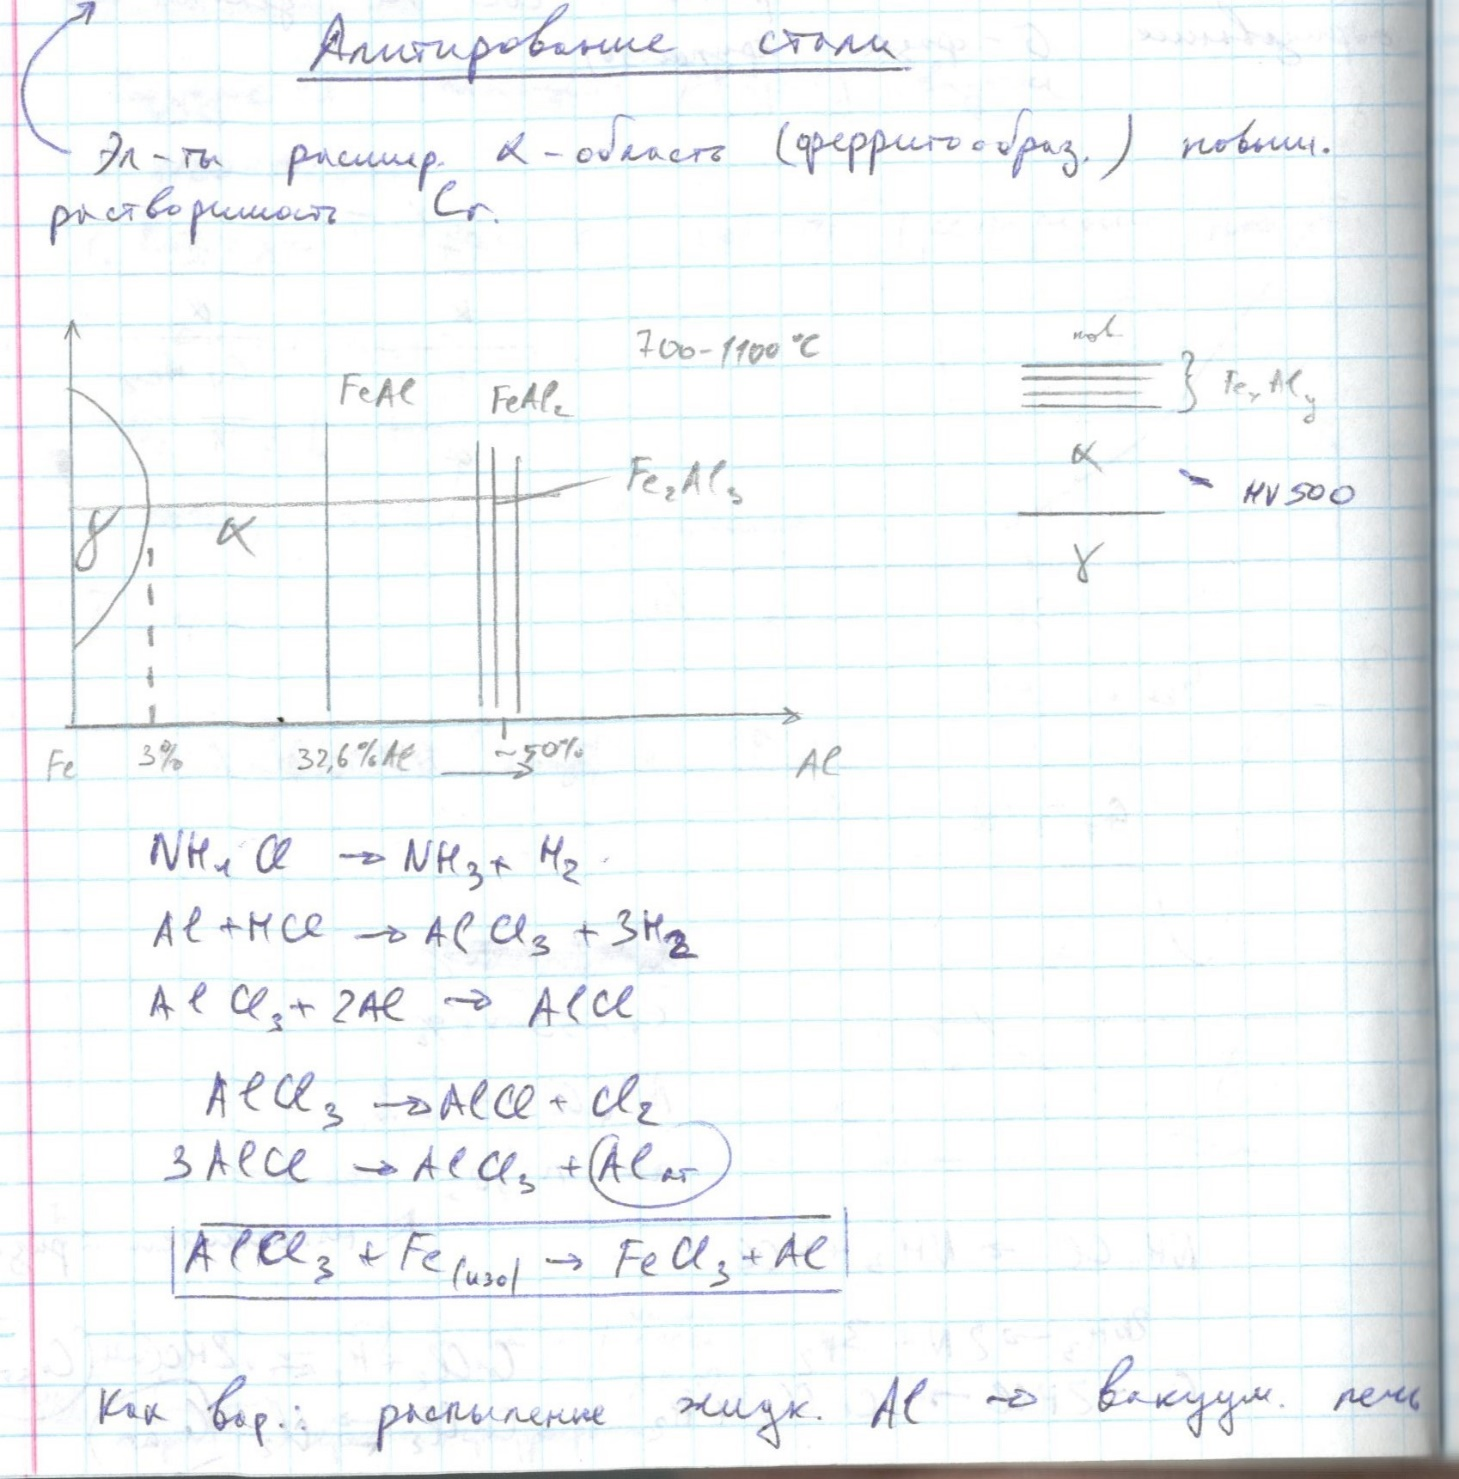 Алитирование стали
Эл-ты расшир. α-область (ферритообраз.) повыш.
растворимость Cr.
700-1100 °C
FeAl
FeAl₂
Fe₂Al₃
γ
α
Fe
3%
32,6%Al
~50%
Al
пов.
FeₓAlᵧ
α
HV500
γ
NH₄Cl → NH₃ + H₂
Al + HCl → AlCl₃ + 3H₂
AlCl₃ + 2Al → AlCl
AlCl₃ → AlCl + Cl₂
3AlCl → AlCl₃ + Alат
AlCl₃ + Fe(изд) → FeCl₃ + Al
Как вар.: распыление жидк. Al → вакуум. печь